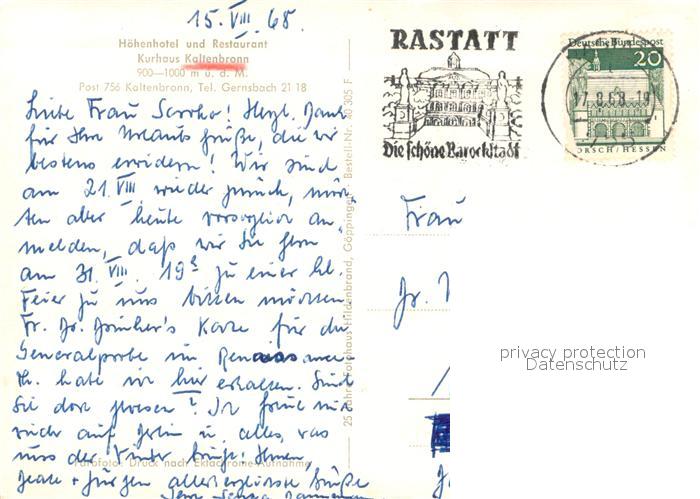 15. VIII. 68.
Höhenhotel und Restaurant
Kurhaus Kaltenbronn
900—1000 m ü. d. M.
Post 756 Kaltenbronn, Tel. Gernsbach 21 18
Liebe Frau! Herzl. Dank
für Ihre Urlaubsgrüße, die wir
bestens erwidern! Wir sind
am 21. VIII. wieder zurück, möch-
ten aber heute vorsorglich an-
melden, daß wir Sie gern
am 31. VIII. 19h zu einer kl.
Feier zu uns bitten möchten.
Fr. Dr. Karte für die
Generalprobe im
hate wir hier erhalten. Sind
Sie dort gewesen? Ich freue mich
auf u. alles, was
uns der Winter bringt! Ihnen
allerherzlichste Grüße
Ihre
Panfoto: Druck nach Ektachrome-Aufnahme
25 Jahre Fotohaus Hildenbrand, Göppingen Bestell-Nr. 305 F
RASTATT
Die schöne Barockstadt
Deutsche Bundespost
20
17.8.68.19
LORSCH/HESSEN
Frau
Dr.
privacy protection
Datenschutz